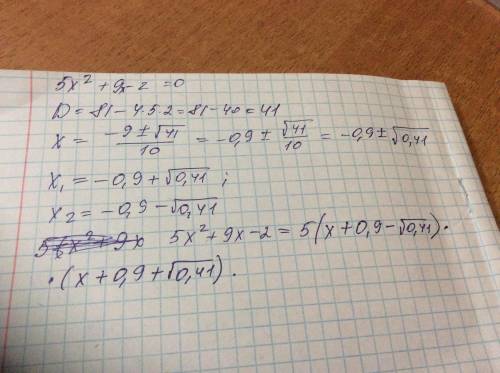 5x² + 9x - 2 = 0
D = 81 - 4·5·2 = 81 - 40 = 41
x = \frac{-9 ± √41}{10} = -0,9 ± \frac{√41}{10} = -0,9 ± √0,41
x₁ = -0,9 + √0,41 ;
x₂ = -0,9 - √0,41
5x² + 9x - 2 = 5(x + 0,9 - √0,41) ·
· (x + 0,9 + √0,41).